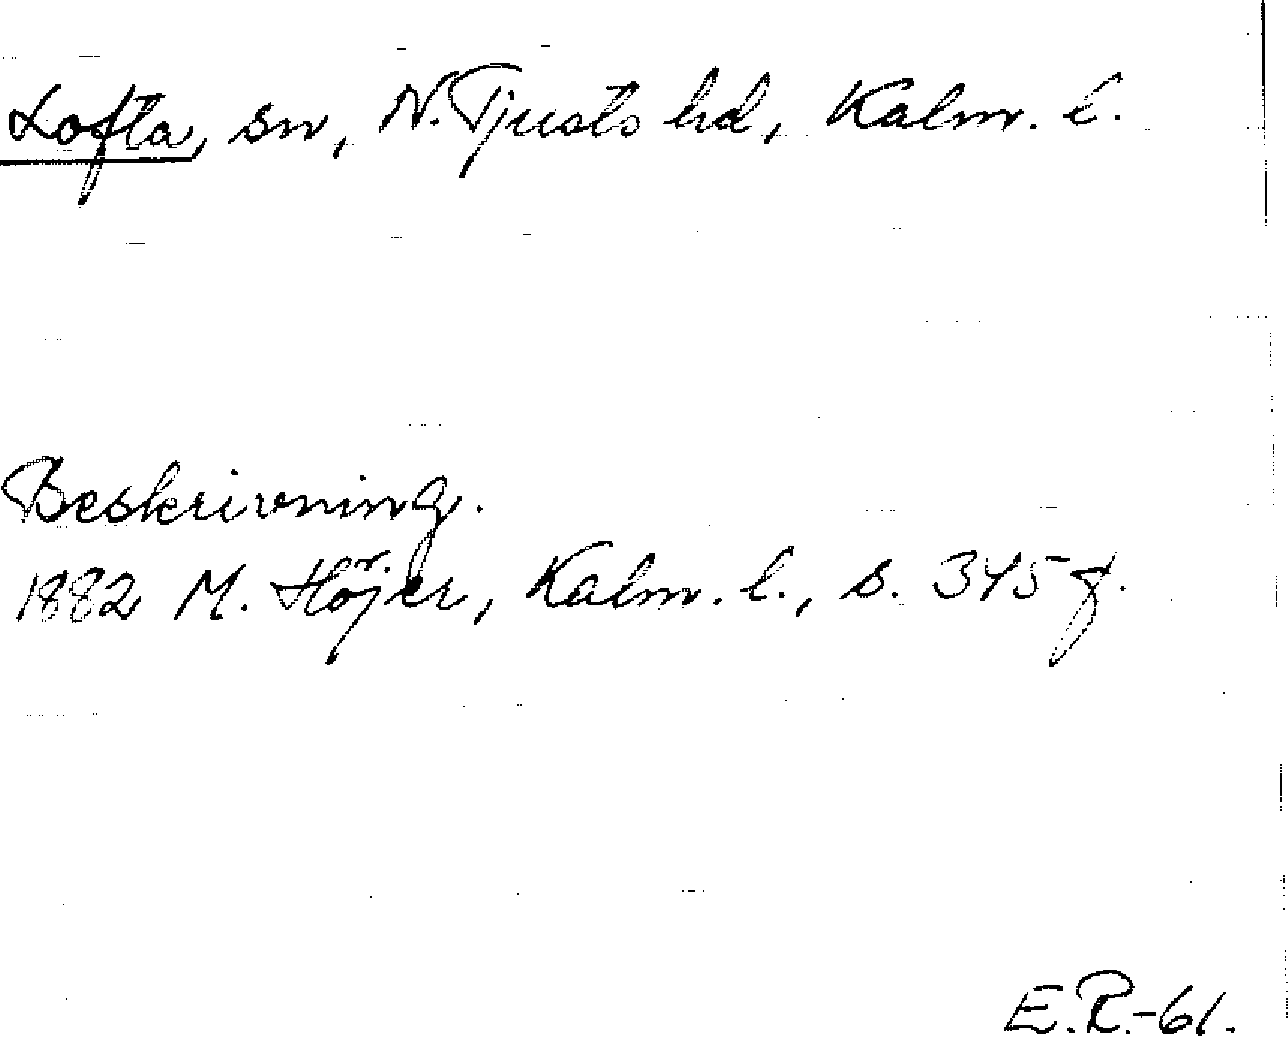 Lofta, sn, N. Tjusts hd, Kalm. l.
Beskrivning.
1882 M. Höjer, Kalm. l., s. 345 f.
E.R.-61.